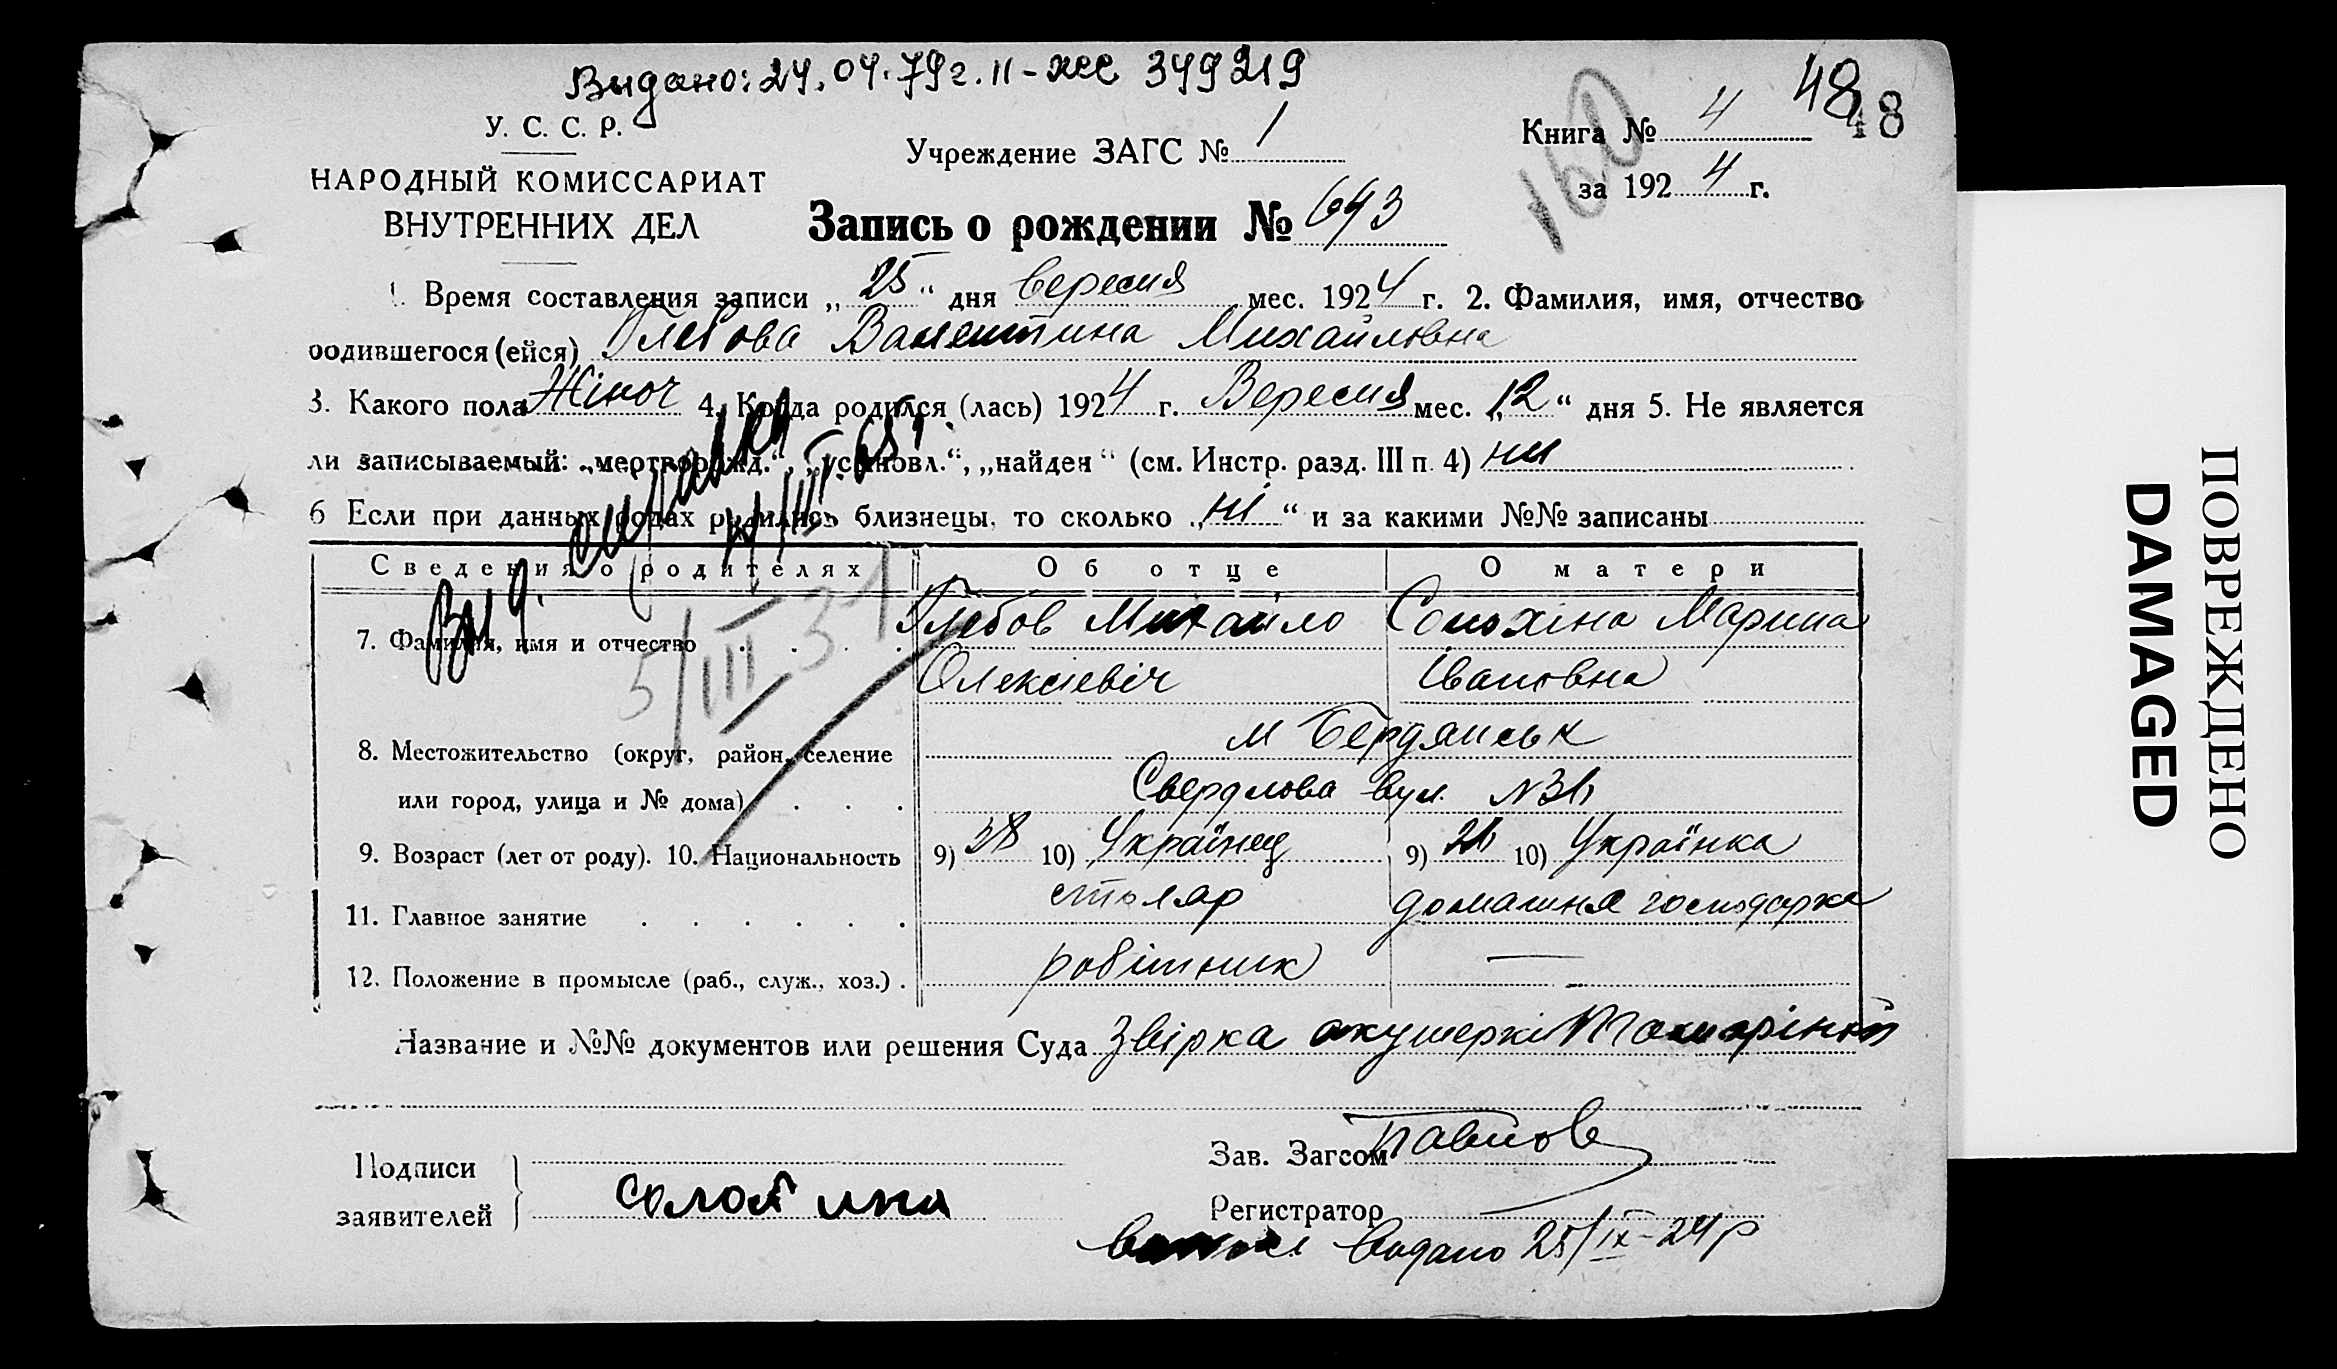 Видано: 24.04.79г. II-жс 349219
У. С. С. Р.
НАРОДНЫЙ КОМИССАРИАТ
ВНУТРЕННИХ ДЕЛ
Учреждение ЗАГС № 1
Книга № 4
48
48
160
за 1924 г.
Запись о рождении № 643
1. Время составления записи „25“ дня Вересня мес. 1924 г. 2. Фамилия, имя, отчество
родившегося (ейся) Глебова Валентина Михайловна
3. Какого пола Жіноч 4. Когда родился (лась) 1924 г. Вересня мес. „12“ дня 5. Не является
ли записываемый: „мертворожд.“, „усыновл.“, „найден“ (см. Инстр. разд. III п. 4) ни
6 Если при данных родах родились близнецы, то сколько „ні“ и за какими №№ записаны
Сведения о родителях Об отце О матери
7. Фамилия, имя и отчество Глебов Михайло
Олексіевіч
Марина
Івановна
5/III 31
8. Местожительство (округ, район, селение
или город, улица и № дома)
м Бердянськ
Свердлова вул.
9. Возраст (лет от роду). 10. Национальность 9) 38 10) Українец 9) 10) Українка
11. Главное занятие столяр домашня господарка
12. Положение в промысле (раб., служ., хоз.) робітник —
Название и №№ документов или решения Суда Звірка акушеркі
Подписи
заявителей
Зав. Загсом
Регистратор
Видано 25/IX-24р
ПОВРЕЖДЕНО
DAMAGED